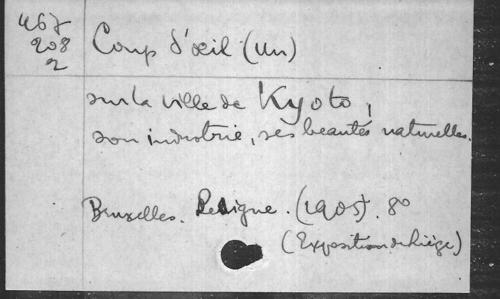 467
208
2
Coup d'œil (Un)
sur la ville de Kyoto,
son industrie, ses beautés naturelles.
Bruxelles. Lesigne. (1905). 8°
(Exposition de Liège)